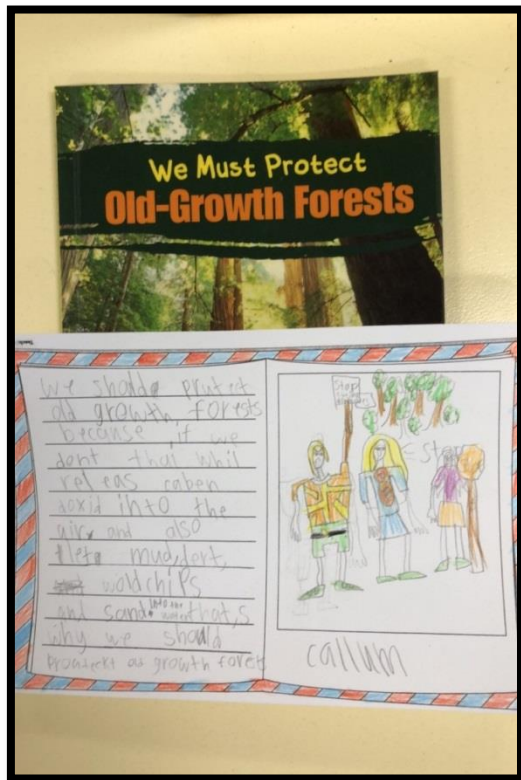 We Must Protect
Old-Growth Forests
We should prutect
old growth forests
because if we
dont that whil
releas caben
doxid into the
air, and also
let mud, dort,
woldchips
and sand into the water that,s
why we should
growth forest
Stop
callum